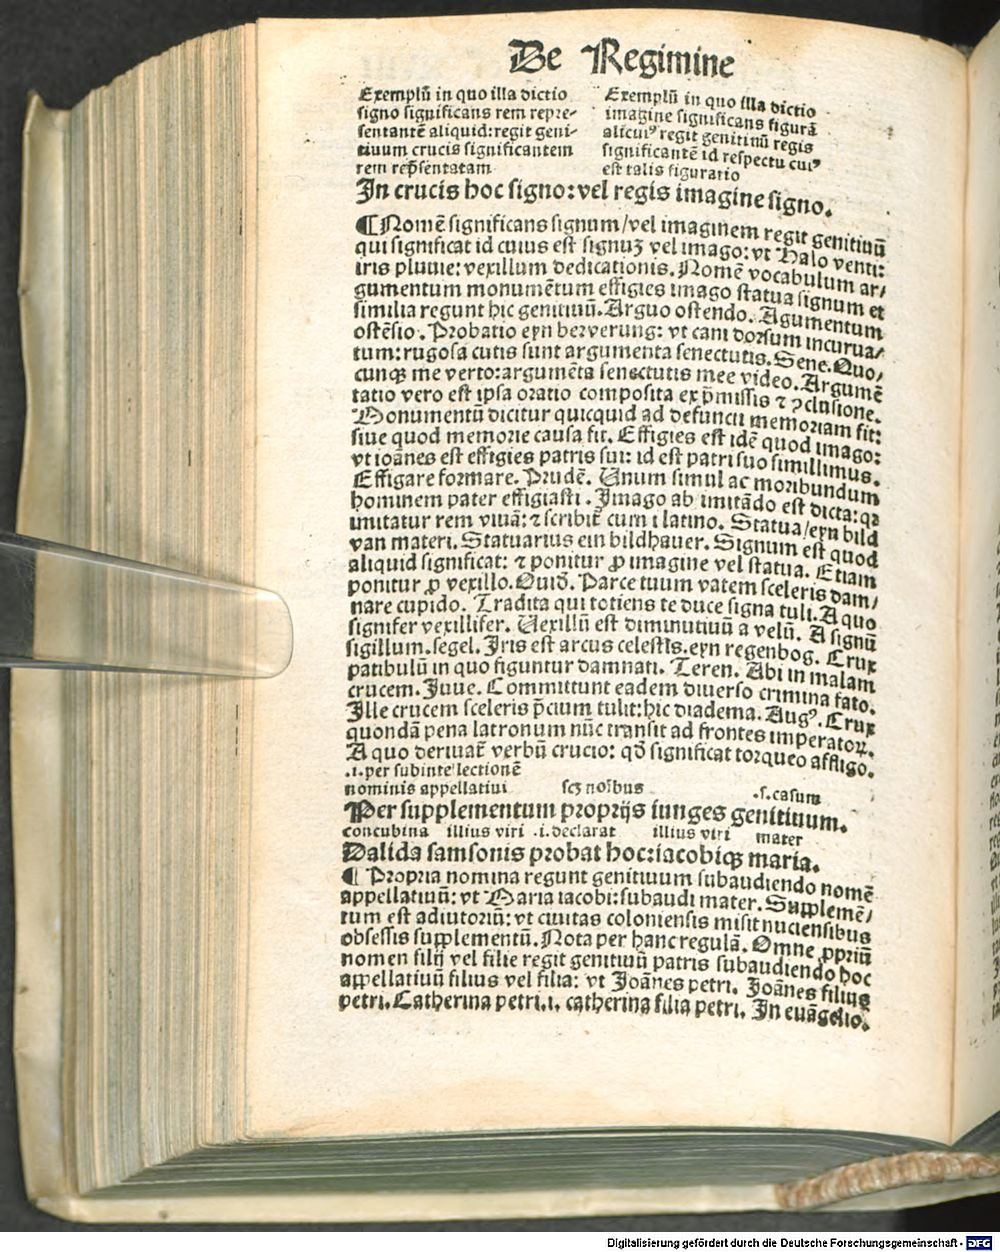 De Regimine
Exemplū in quo illa dictio
signo significans rem repre-
sentantē aliquid: regit geni-
tiuum crucis significantem
rem rep̄sentatam
Exemplū in quo illa dictio
imagine significans figurā
alicuiꝰ regit genitinū regis
significantē id respectu cuiꝰ
est talis figuratio
In crucis hoc signo: vel regis imagine signo.
¶ Nomē significans signum/vel imaginem regit genitiuū
qui significat id cuius est signuʒ vel imago: vt Halo venti:
iris pluuie: vexillum dedicationis. Nomē vocabulum ar/
gumentum monumētum effigies imago statua signum et
similia regunt hic genitiuū. Arguo ostendo. Agumentum
ostēsio. Probatio eyn berverung: vt cani dorsum incurua/
tum: rugosa cutis sunt argumenta senectutis. Sene. Quo/
cunqꝫ me verto: argumēta senectutis mee video. Argumē
tatio vero est ipsa oratio composita ex p̄missis ⁊ ꝯclusione.
Monumentū dicitur quicquid ad defuncti memoriam fit:
siue quod memorie causa fit. Effigies est idē quod imago:
vt ioānes est effigies patris sui: id est patri suo simillimus.
Effigare formare. Prudē. Unum simul ac moribundum
hominem pater effigiasti. Imago ab imitādo est dicta: qꝛ
imitatur rem viuā: ⁊ scribit̄ cum i latino. Statua/eyn bild
van materi. Statuarius ein bildhauer. Signum est quod
aliquid significat: ⁊ ponitur ꝓ imagine vel statua. Etiam
ponitur ꝓ vexillo. Ouid̄. Parce tuum vatem sceleris dam/
nare cupido. Tradita qui totiens te duce signa tuli. A quo
signifer vexillifer. Uexillū est diminutiuū a velū. A signū
sigillum. segel. Iris est arcus celestis. eyn regenbog. Crux
patibulū in quo figuntur damnati. Teren. Abi in malam
crucem. Juue. Committunt eadem diuerso crimina fato.
Ille crucem sceleris p̄cium tulit: hic diadema. Augꝰ. Crux
quondā pena latronum nūc transit ad frontes imperatoꝝ.
A quo deriuat̄ verbū crucio: qd̄ significat torqueo affligo.
.i. per subintellectionē
nominis appellatiui scꝫ noībus .s. casum
Per supplementum proprijs iunges genitiuum.
concubina illius viri .i. declarat illius viri mater
Dalida samsonis probat hoc: iacobiqꝫ maria.
¶ Propria nomina regunt genitiuum subaudiendo nomē
appellatiuū: vt Maria iacobi: subaudi mater. Supplemē/
tum est adiutoriū: vt ciuitas coloniensis misit nuciensibus
obsessis supplementū. Nota per hanc regulā. Omne ꝓpriū
nomen filij vel filie regit genitiuū patris subaudiendo hoc
appellatiuū filius vel filia: vt Joānes petri. Joānes filius
petri. Catherina petri.i. catherina filia petri. In euāgelio.
Digitalisierung gefördert durch die Deutsche Forschungsgemeinschaft - DFG